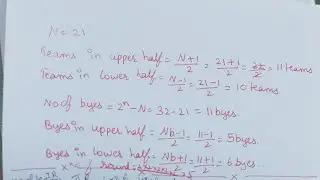 N = 21
Teams in upper half = N+1/2 = 21+1/2 = 22/2 = 11 teams
Teams in lower half = N-1/2 = 21-1/2 = 10 teams
No of byes = 2ⁿ - N = 32-21 = 11 byes.
Byes in upper half = Nb-1/2 = 11-1/2 = 5 byes.
Byes in lower half = Nb+1/2 = 11+1/2 = 6 byes.